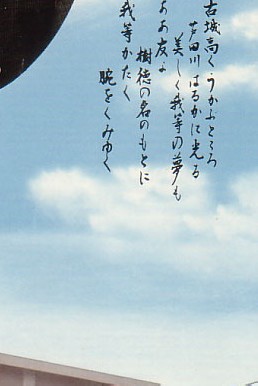 古城高くうかぶところ
芦田川はるかに光る
美しく我等の夢も
ああ友よ
樹徳の名のもとに
我等かたく
腕をくみゆく